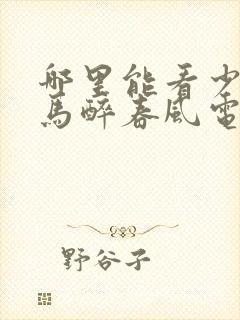 哪里能看少
马醉春风电
野谷子